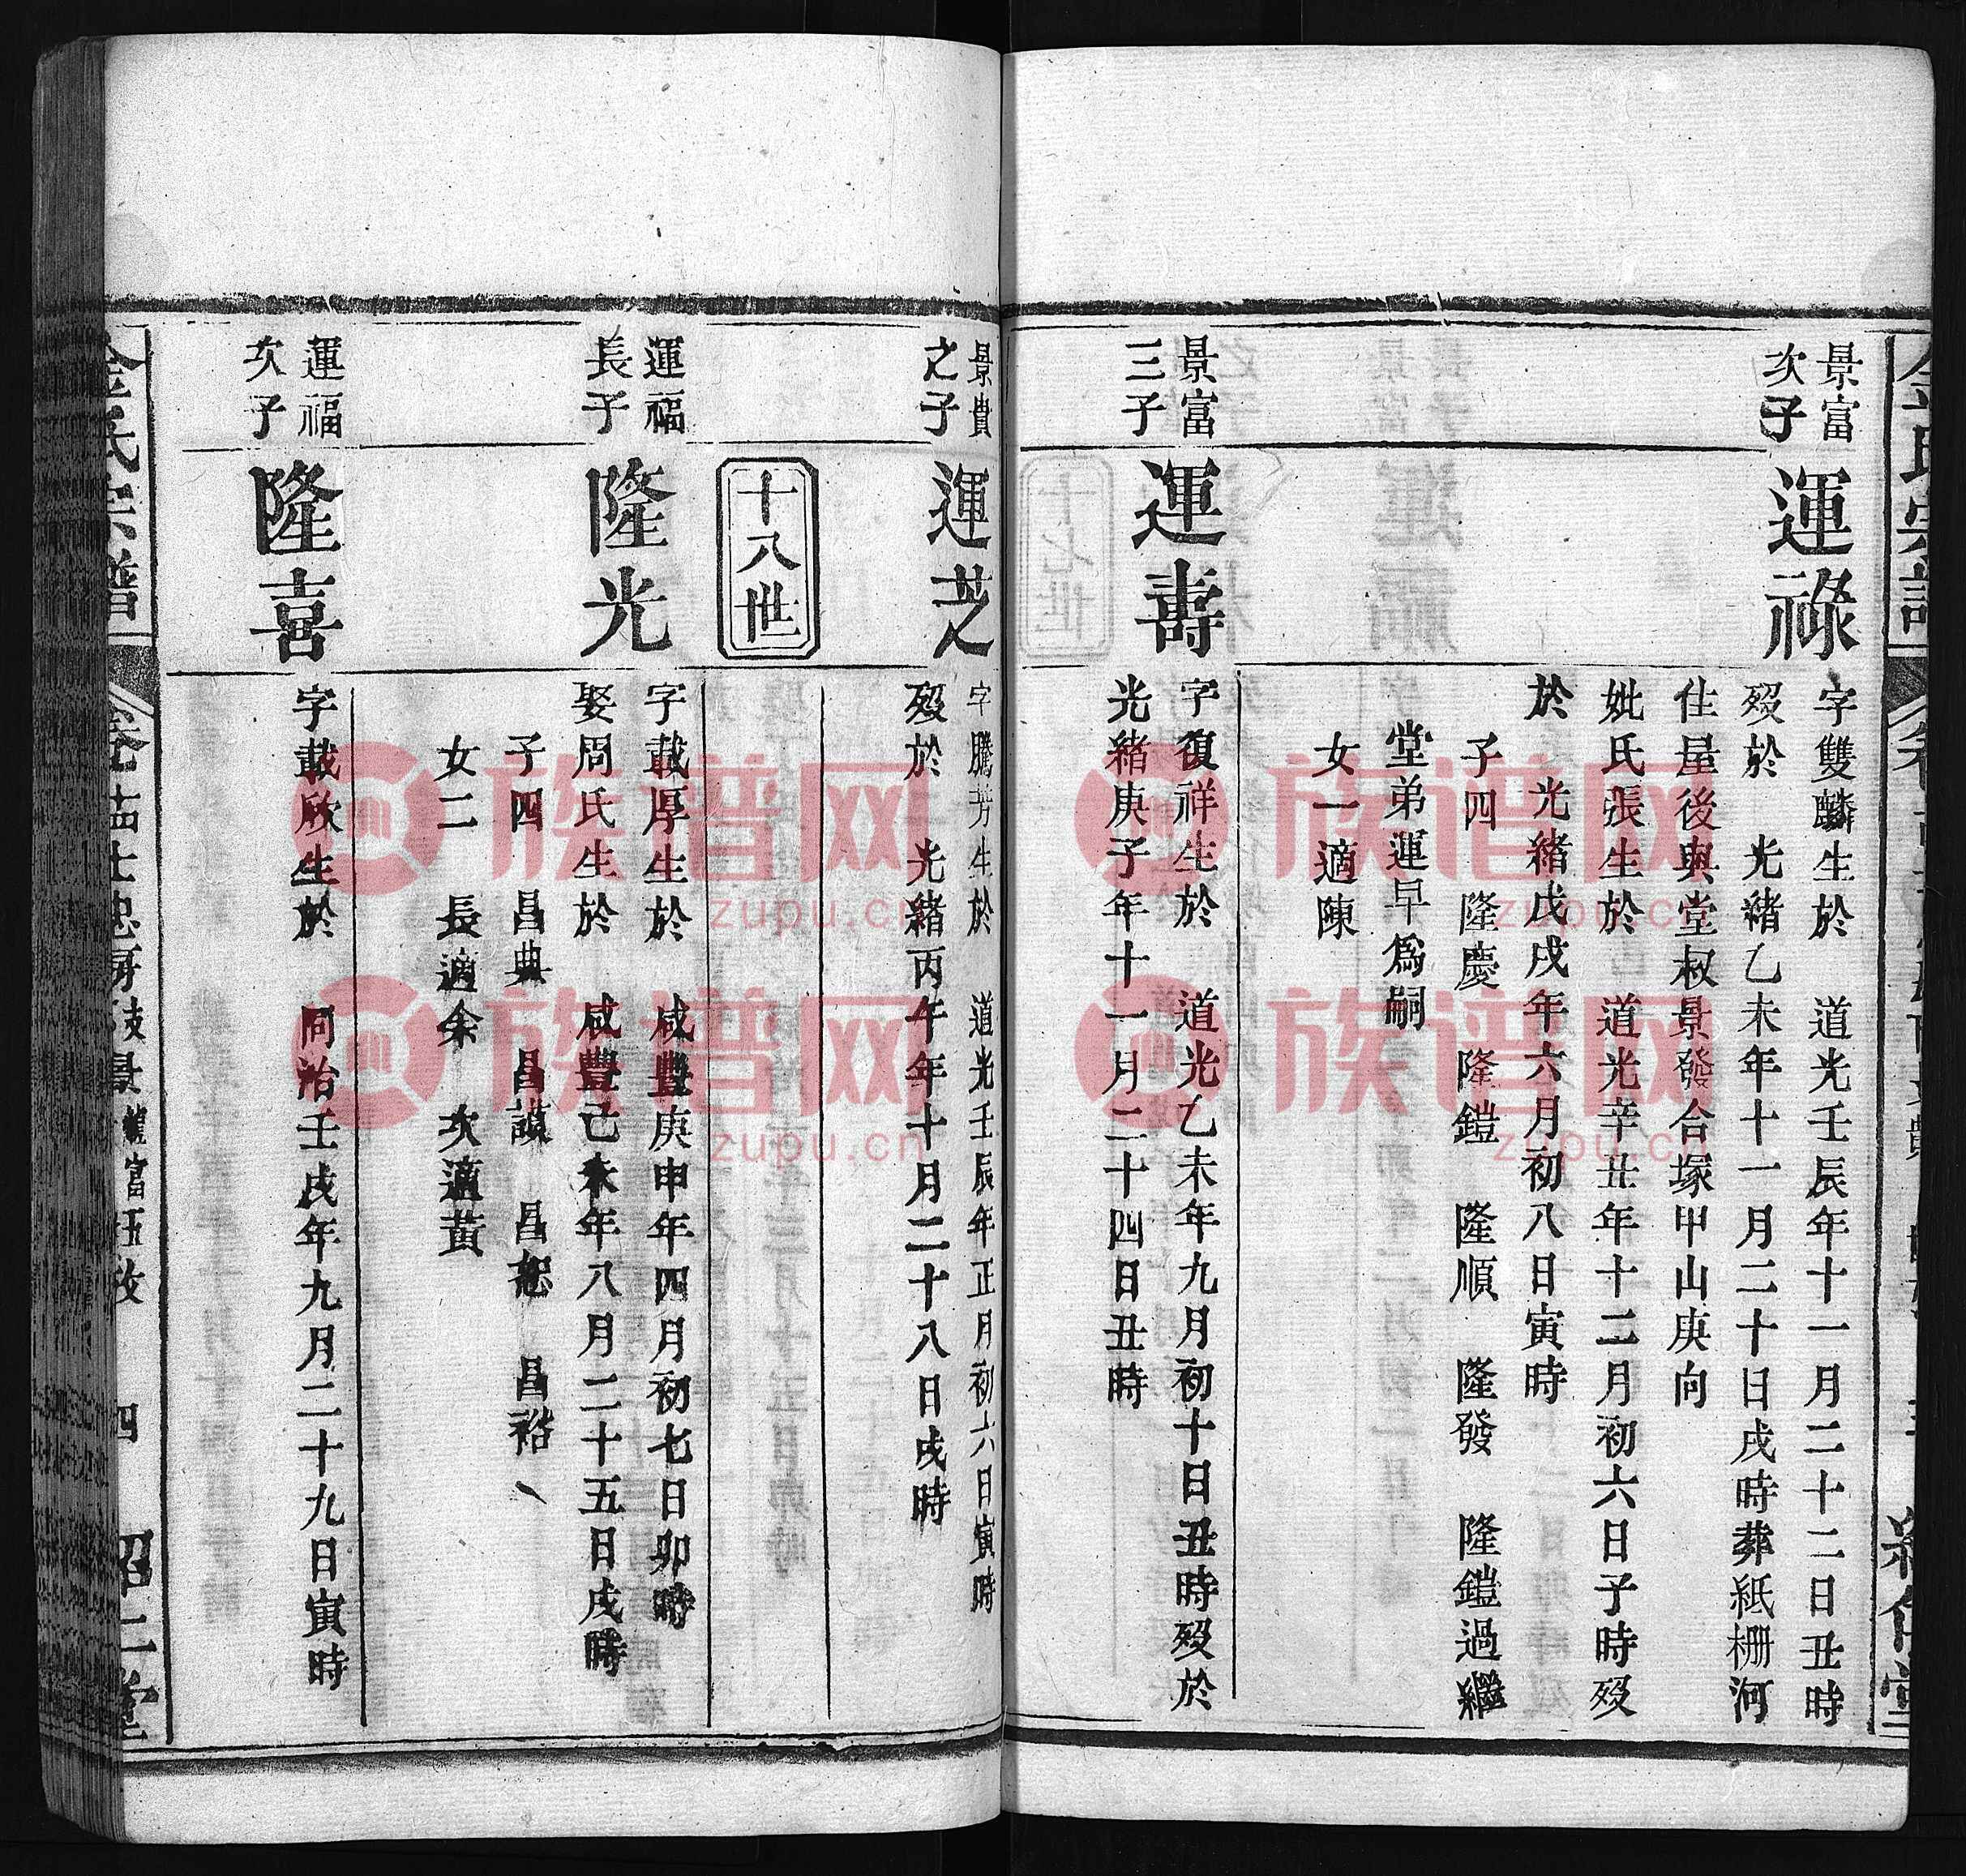 景富
次子
運祿
字雙麟生於　道光壬辰年十一月二十二日丑時
歿於　光緒乙未年十一月二十日戌時葬紙柵河
仕屋後與堂叔景發合塚甲山庚向
妣氏張生於　道光辛丑年十二月初六日子時歿
於　光緒戊戌年六月初八日寅時
子四　隆慶　隆鎧　隆順　隆發　隆鎧過繼
堂弟運早為嗣
女一適陳
景富
三子
運壽
字復祥生於　道光乙未年九月初十日丑時歿於
光緒庚子年十一月二十四日丑時
景貴
之子
運芝
字騰芳生於　道光壬辰年正月初六日寅時
歿於　光緒丙午年十月二十八日戌時
十八世
運福
長子
隆光
字載厚生於　咸豐庚申年四月初七日卯時
娶周氏生於　咸豐己未年八月二十五日戌時
子四　昌典　昌謨　昌恕　昌裕
女二　長適余　次適黃
運福
次子
隆喜
字載欣生於　同治壬戌年九月二十九日寅時
金氏宗譜
四
族谱网
zupu.cn
族谱网
zupu.cn
族谱网
zupu.cn
族谱网
zupu.cn